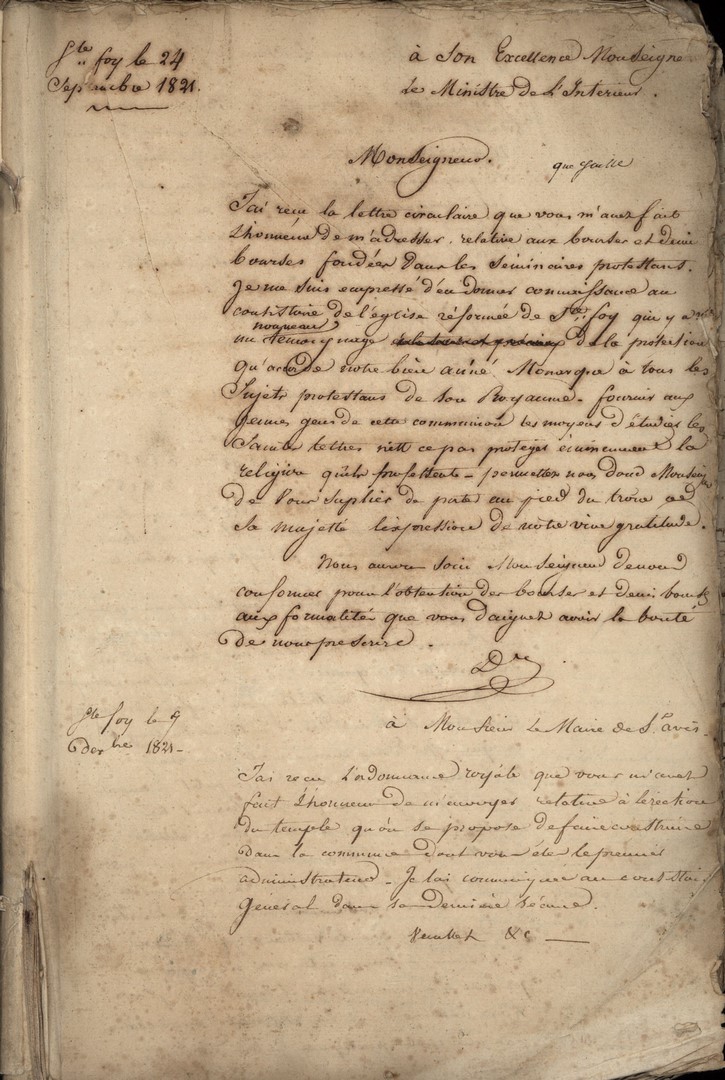 Ste foy le 24
Septembre 1821.
à Son Excellence Monseigne
Le Ministre de L'Interieur.
Monseigneur.
J'ai recu la lettre circulaire que vous m'avez fait
L'honneur de m'adresser, relative aux bourses et demi
bourses fondées Dans les séminaires protestans.
Je me suis empressé d'en donner connaissance au
consistoire de l'église réformée de Ste foy qui y a
nouveau
un temoignage de la protection
qu'accorde notre bien aimé Monarque à tous les
Sujets protestans de son Royaume. fournir aux
jeunes gens de cette communion les moyens d'étudier les
Saintes lettres n'est ce pas protéger éminemment la
religion qu'ils professent - permettez nous donc Monseig
de vous suplier de porter au pied du trône de
Sa majesté l'expression de notre vive gratitude.
Nous aurons soin Monseigneur de nous
conformer pour l'obtention des bourses et demi bourses
aux formalités que vous daignez avoir la bonté
De nous prescrire.
Dr
Ste foy le 9
Derbre 1821-
à Monsieur Le Maire de St avis-
J'ai recu L'ordonnance royale que vous m'avez
fait L'honneur de m'envoyer relative à l'érection
du temple qu'on se propose de faire construire
Dans la commune dont vous êtes le premier
administrateur. Je l'ai communiquée au consistoire
général dans sa dernière séance.
Veuillez &c —